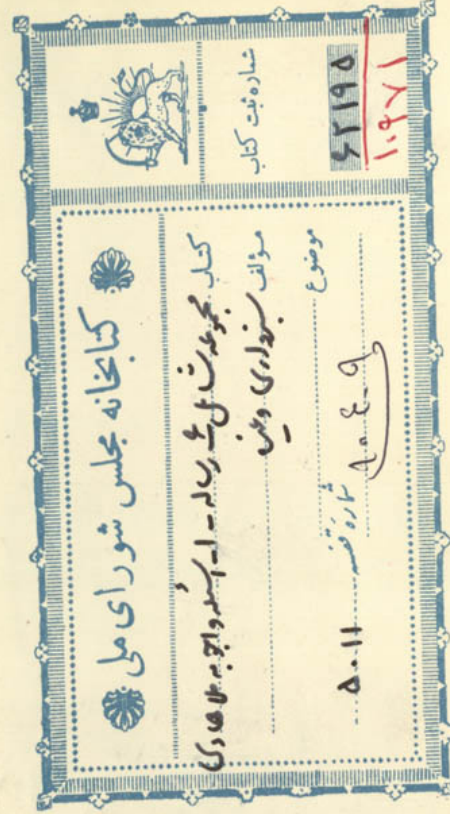 کتابخانه مجلس شورای ملی
کتاب مجموعه شامل ۶ رساله - ۱ - اسئله و اجوبه ملا هادی
مؤلف سبزواری وغیره
موضوع
شماره قفسه
۵۰۱۱
۹-۴-۹
شماره ثبت کتاب
۶۲۱۹۵
۱۰۹۷۱